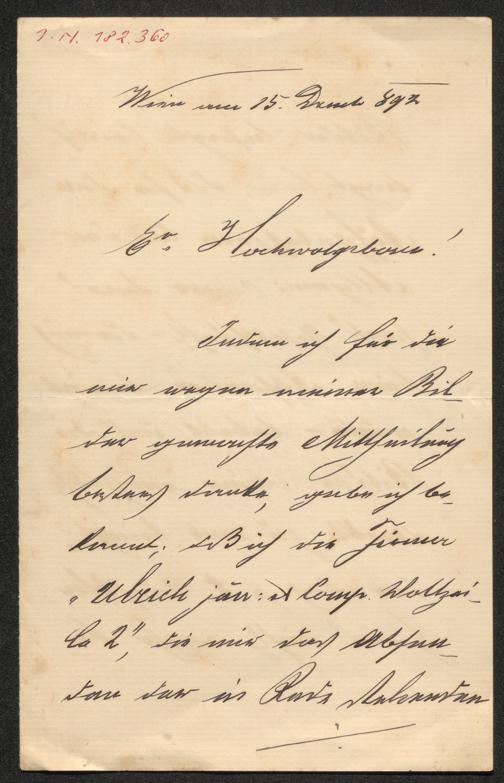 I.N. 182.360
Wien am 15. Dezemb 892
Er. Hochwolgeboren!
Indem ich für die
mir wegen meiner Bil-
der gemachte Mittheilung
bestens danke, gebe ich be-
kannt, daß ich die Firma
"Ulrich jun: & Comp. Wollzei-
le 2", die mir das Absen-
den der in Rede stehenden